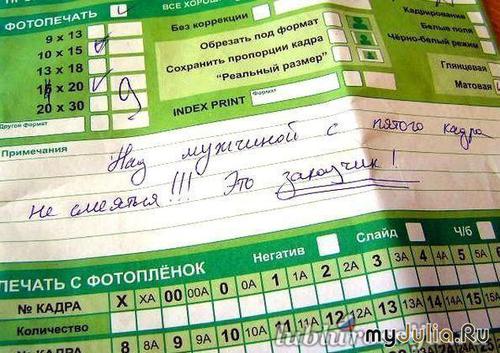 ВСЕ ХОРОШ
Без коррекции
Кадрирование
ФОТОПЕЧАТЬ
Обрезать под формат
Белые поля
9 x 13
Сохранить пропорции кадра
Чёрно-белый режим
10 x 15
"Реальный размер"
Глянцевая
13 x 18
Матовая
15 x 20
INDEX PRINT
20 x 30
9
Другой формат
Примечания
Над мужчиной с пятого кадра
не смеяться!!! Это заказчик!
Негатив
Слайд
Ч/б
ПЕЧАТЬ С ФОТОПЛЁНОК
№ КАДРА X XA 00 00A 0 0A 1 1A 2 2A 3 3A 4 4A 5 5A
Количество
№ КАДРА 8 8A 9 9A 10 10A 11 11A 12 12A 13 13A 14 14A 15
myJulia.Ru